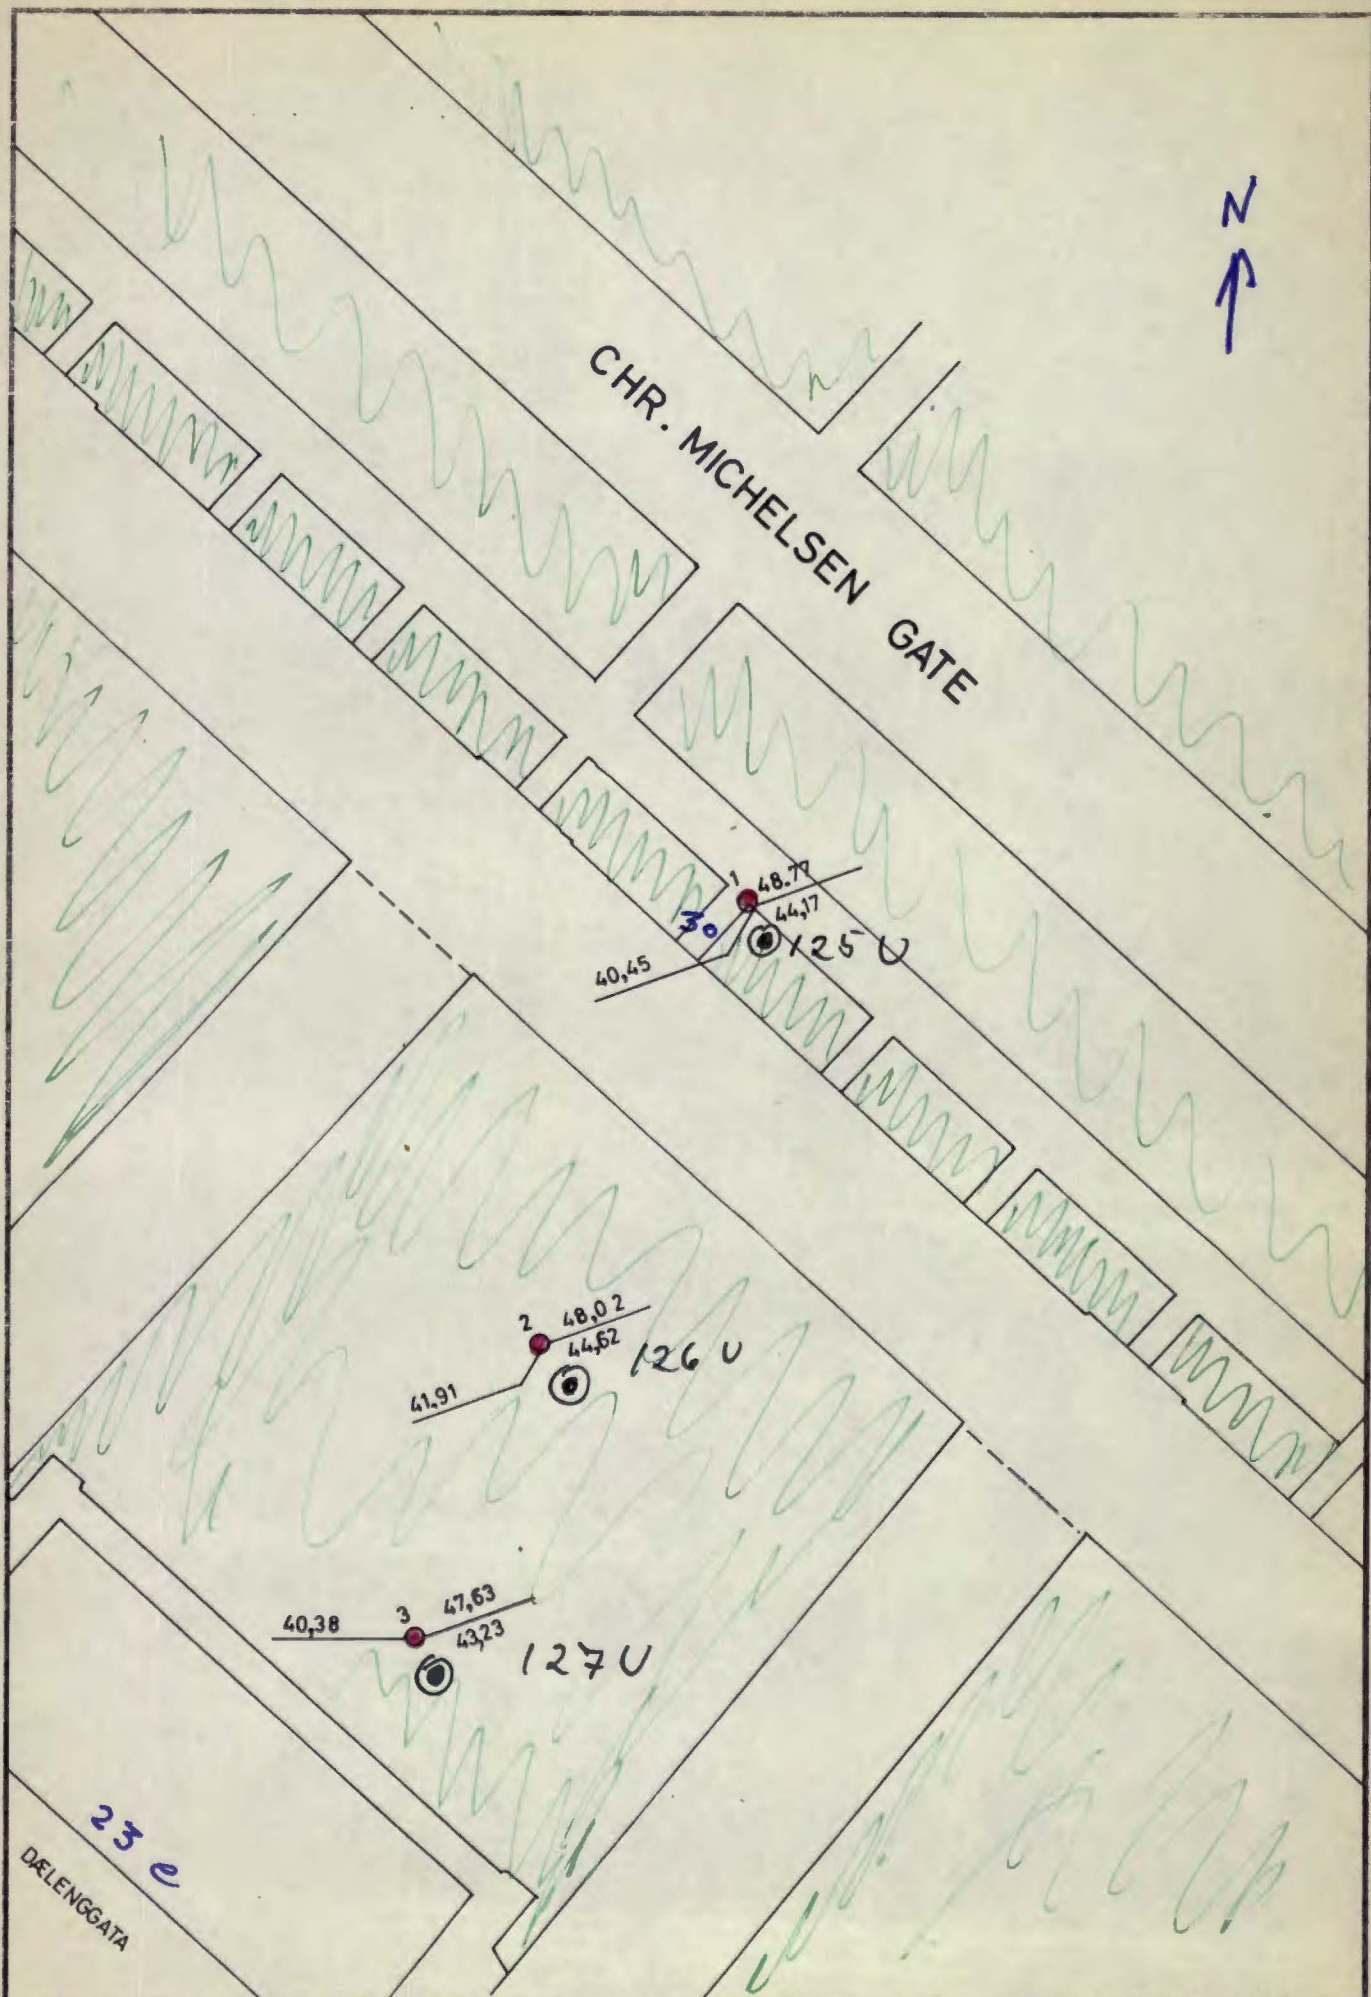 N
CHR. MICHELSEN GATE
1
48.77
44,17
30
125 U
40,45
2
48,02
44,62
126 U
41,91
3
47,63
43,23
40,38
127 U
23 e
DÆLENGGATA